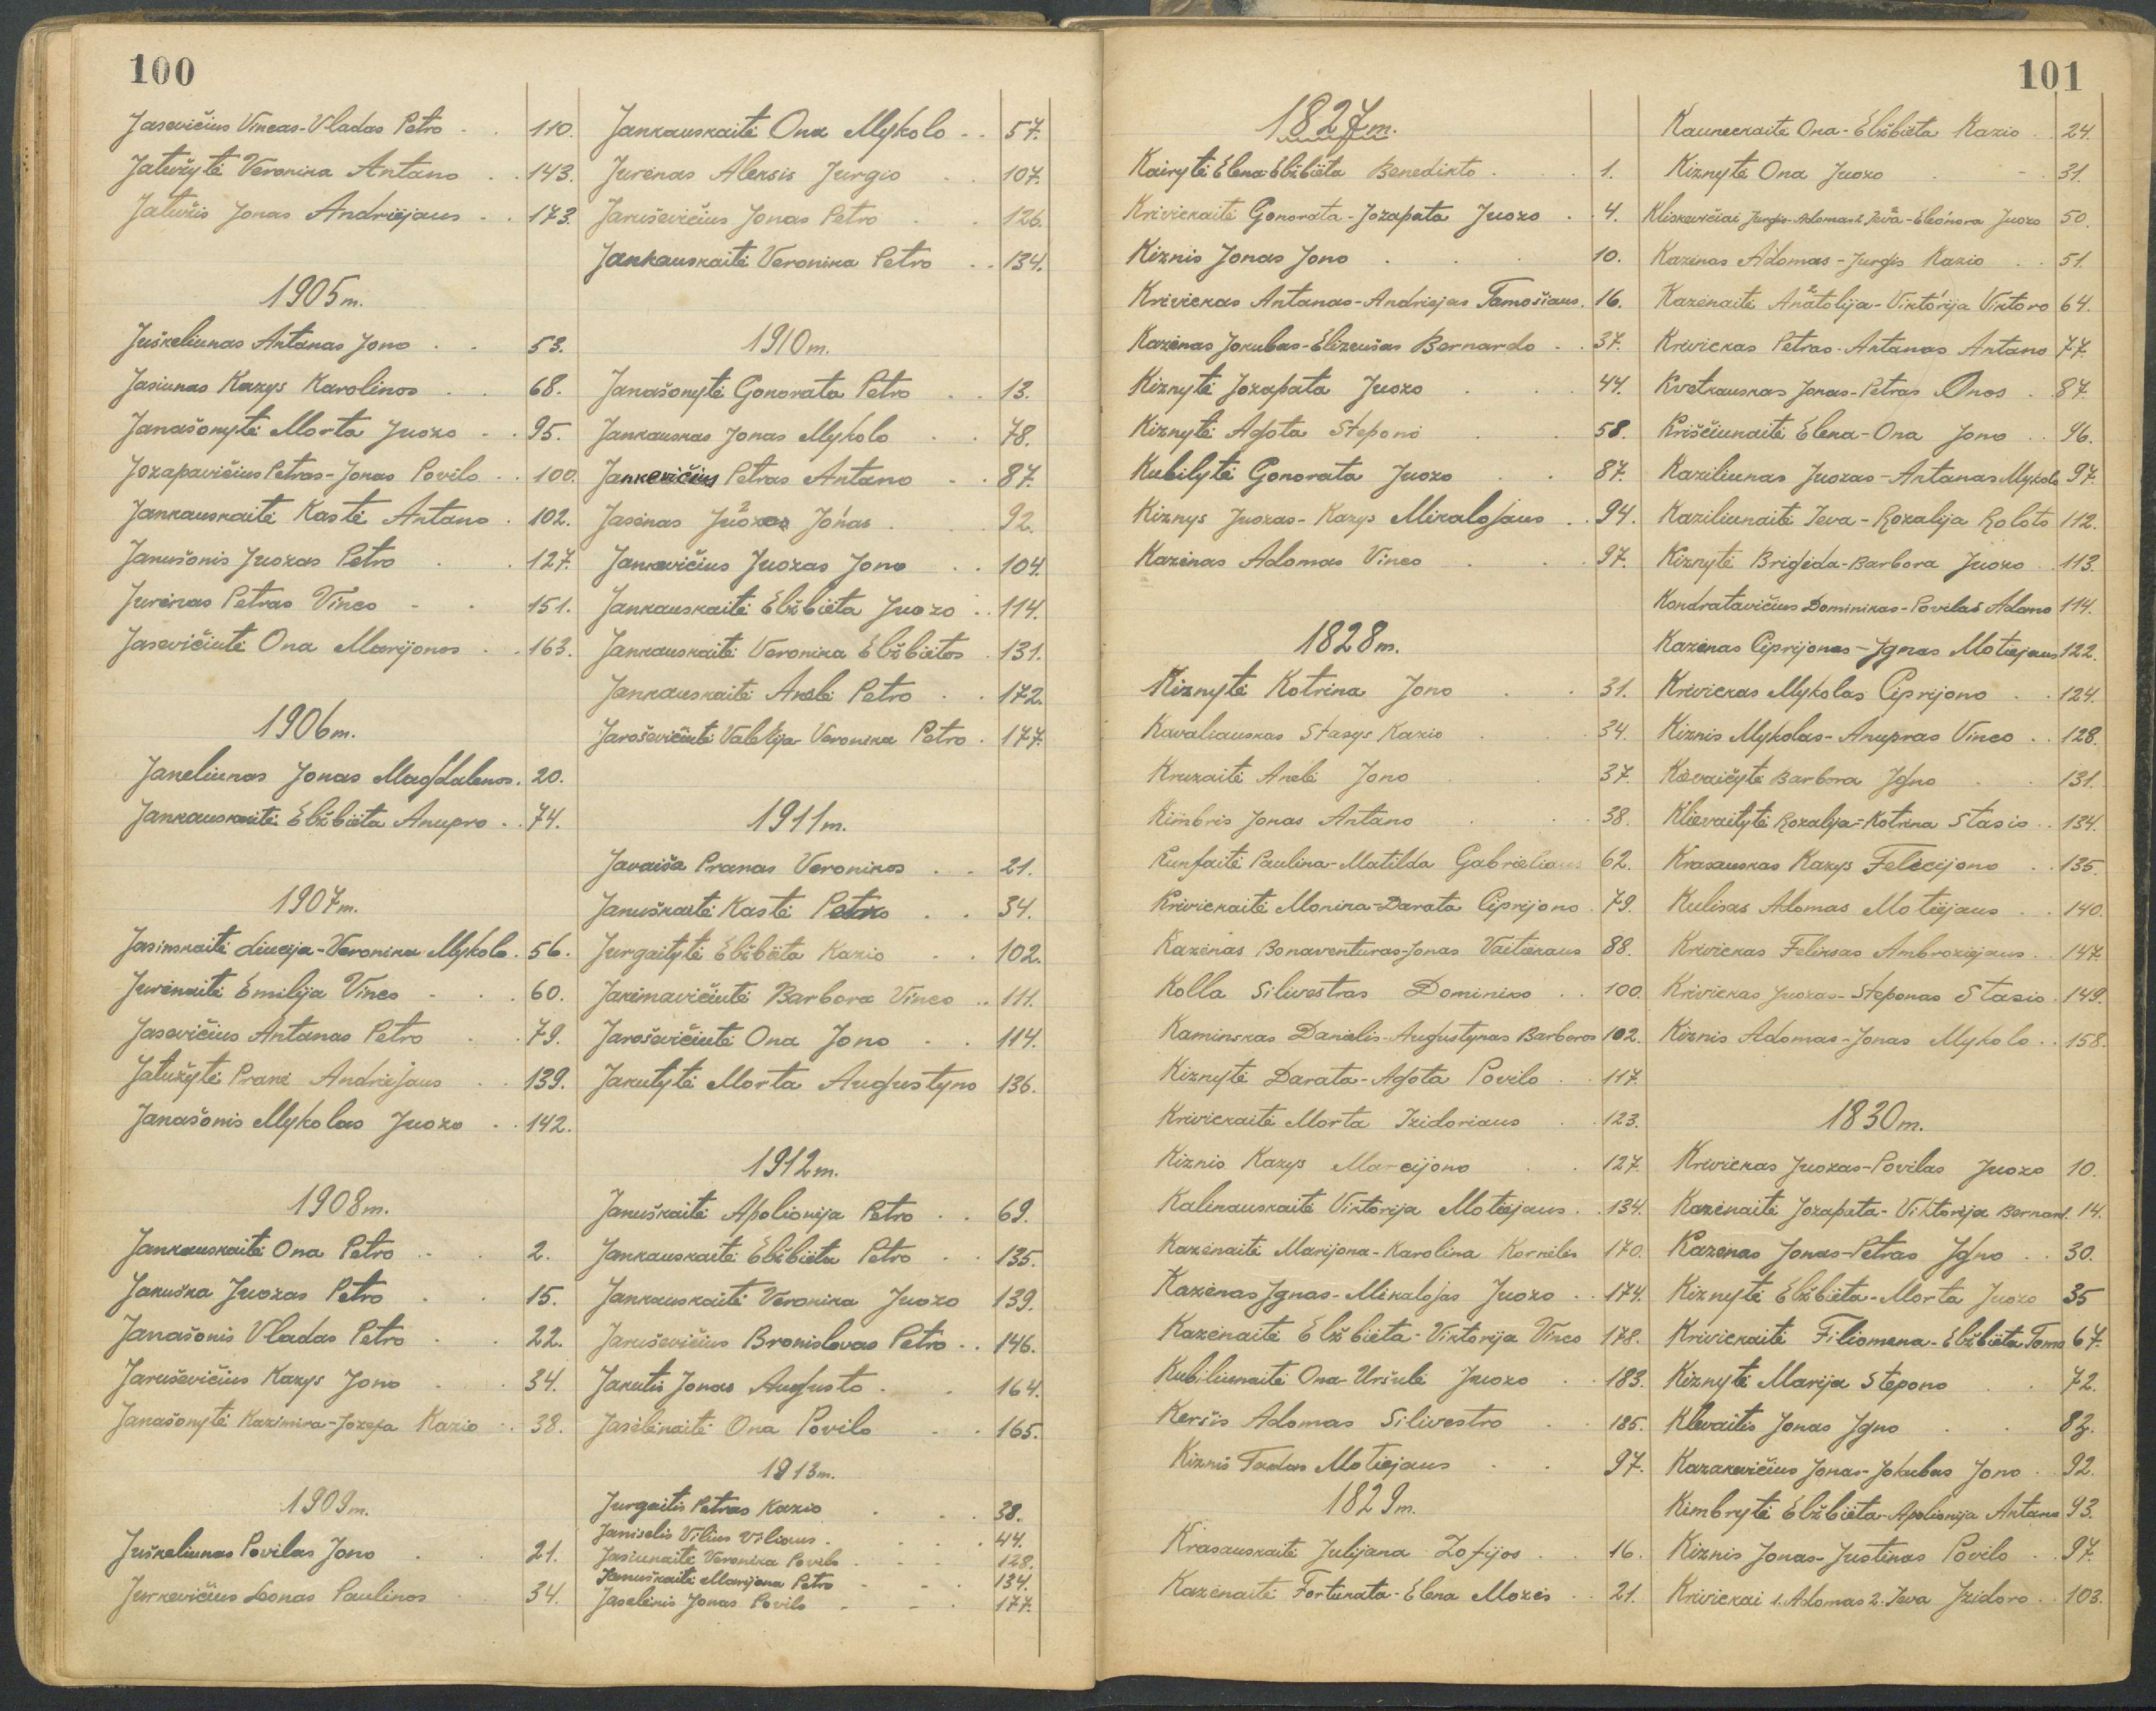 100
Jasevičius Vincas-Vladas Petro - . 110.
Jatužytė Veronika Antano . . 143.
Jatužis Jonas Andriejaus - . 173.
1905 m.
Juškeliunas Antanas Jono . . 53.
Jasiunas Kazys Karolinos . . 68.
Janašonytė Morta Juozo - . 95.
Jozapavičius Petras-Jonas Povilo . . 100.
Jankauskaitė Kastė Antano . 102.
Janušonis Juozas Petro . . 127.
Jurėnas Petras Vinco - . 151.
Jasevičiutė Ona Marijonos . . 163.
1906 m.
Janeliunas Jonas Magdalenos. 20.
Jankauskaitė Elžbieta Anupro . . 74.
1907 m.
Jasinskaitė Liucija-Veronika Mykolo. 56.
Jurėnaitė Emilija Vinco - . . 60.
Jasevičius Antanas Petro . . 79.
Jatužytė Pranė Andriejaus . . 139.
Janašonis Mykolas Juozo . . 142.
1908 m.
Jankauskaitė Ona Petro - . 2.
Jakuška Juozas Petro . . 15.
Janašonis Vladas Petro . . 22.
Jaruševičius Kazys Jono . . 34.
Janašonytė Kazimira-Jozefa Kazio . . 38.
1909 m.
Juškeliunas Povilas Jono . . 21.
Jurkevičius Leonas Paulinos . . 34.
Jankauskaitė Ona Mykolo - . 57.
Jurėnas Aleksis Jurgio . . 107.
Jaruševičius Jonas Petro . . 126.
Jankauskaitė Veronika Petro . . 134.
1910 m.
Janašonytė Gonorata Petro . . 13.
Jankauskas Jonas Mykolo . . 78.
Jankevičius Petras Antano - . 87.
Jasėnas Juozas Jonas . . 92.
Jankevičius Juozas Jono . . 104.
Jankauskaitė Elžbieta Juozo . . 114.
Jankauskaitė Veronika Elžbietos . 131.
Jankauskaitė Anelė Petro . . 172.
Jaroševičiutė Valerija-Veronika Petro . 177.
1911 m.
Javaiša Pranas Veronikos . . 21.
Januškaitė Kastė Petro . . 34.
Jurgaitytė Elžbieta Kazio . . 102.
Jakimavičiutė Barbora Vinco . . 111.
Jaroševičiutė Ona Jono . . 114.
Jakutytė Morta Augustyno 136.
1912 m.
Januškaitė Apolionija Petro . . 69.
Jankauskaitė Elžbieta Petro . . 135.
Jankauskaitė Veronika Juozo 139.
Jaruševičius Bronislovas Petro . . 146.
Jakutis Jonas Augusto . . 164.
Jasėlėnaitė Ona Povilo . . 165.
1913 m.
Jurgaitis Petras Kazio . . . 38.
Janiselis Vilius Viliaus . . . . 44.
Jasiunaitė Veronika Povilo . - - 128.
Januškaitė Marijona Petro - - . 134.
Jaselėnis Jonas Povilo - - . 177.
101
1827 m.
Kairytė Elena-Elžbieta Benedikto . . . 1.
Krivickaitė Gonorata-Jozapata Juozo . . 4.
Kiznis Jonas Jono . . . 10.
Krivickas Antanas-Andriejas Tamošiaus. 16.
Kazėnas Jokubas-Elizeušas Bernardo - . 37.
Kiznytė Jozapata Juozo . . . 44.
Kiznytė Agota Stepono . . 58.
Kubilytė Gonorata Juozo . . 87.
Kiznys Juozas-Kazys Mikalojaus . . 94.
Kazėnas Adomas Vinco . . . 97.
1828 m.
Kiznytė Kotrina Jono . . . 31.
Kavaliauskas Stasys Kazio . . 34.
Kruzaitė Anelė Jono . . . 37.
Kimbris Jonas Antano . . . 38.
Kunfaitė Paulina-Matilda Gabrieliaus 62.
Krivickaitė Monika-Darata Ciprijono . 79.
Kazėnas Bonaventuras-Jonas Vaitiekaus 88.
Kolla Silivestras Dominiko . . 100.
Kaminskas Danielis-Augustynas Barboros 102.
Kiznytė Darata-Agota Povilo . . 117.
Krivickaitė Morta Izidoriaus . . 123.
Kiznis Kazys Marcijono . . 127.
Kalinauskaitė Viktorija Motiejaus . . 134.
Kazėnaitė Marijona-Karolina Kornėlės 170.
Kazėnas Ignas-Mikalojas Juozo . . 174.
Kazėnaitė Elžbieta-Viktorija Vinco 178.
Kubiliunaitė Ona-Uršulė Juozo . . 183.
Keršis Adomas Silivestro . . 185.
Kiznis Tadas Motiejaus . . 97.
1829 m.
Krasauskaitė Julijana Zofijos . . 16.
Kazėnaitė Fortunata-Elena Mozės . . 21.
Kauneckaitė Ona-Elžbieta Kazio . . 24.
Kiznytė Ona Juozo . - . 31.
Kliskevičiai Jurgis-Adomas 2 Ieva-Eleonora Juozo 50.
Kazėnas Adomas-Jurgis Kazio . . 51.
Kazėnaitė Anatolija-Viktorija Viktoro 64.
Krivickas Petras-Antanas Antano 77.
Kvetkauskas Jonas-Petras Onos . 87.
Kriščiunaitė Elena-Ona Jono . . 96.
Kaziliunas Juozas-Antanas Mykolo 97.
Kaziliunaitė Ieva-Rozalija Roloto 112.
Kiznytė Brigieda-Barbora Juozo . . 113.
Kondratavičius Dominikas-Povilas Adomo 114.
Kazėnas Ciprijonas-Ignas Motiejaus 122.
Krivickas Mykolas Ciprijono . . 124.
Kiznis Mykolas-Anupras Vinco . . 128.
Kievaičytė Barbora Igno . . 131.
Klievaitytė Rozalija-Kotrina Stasio . . 134.
Krasauskas Kazys Felicijono . . 135.
Kulisas Adomas Motiejaus . . 140.
Krivickas Feliksas Ambroziejaus . . 147.
Krivickas Juozas-Steponas Stasio . 149.
Kiznis Adomas-Jonas Mykolo . . 158.
1830 m.
Krivickas Juozas-Povilas Juozo 10.
Kazėnaitė Jozapata-Viktorija Bernard. 14.
Kazėnas Jonas-Petras Igno . . 30.
Kiznytė Elžbieta-Morta Juozo 35
Krivickaitė Filiomena-Elžbieta Tomo 67.
Kiznytė Marija Stepono . . 72.
Klevaitis Jonas Igno . . 82.
Kazakevičius Jonas-Jokubas Jono . 92.
Kimbrytė Elžbieta-Apolionija Antano 93.
Kiznis Jonas-Justinas Povilo . . 97.
Krivickai 1. Adomas 2. Ieva Izidoro . . 103.